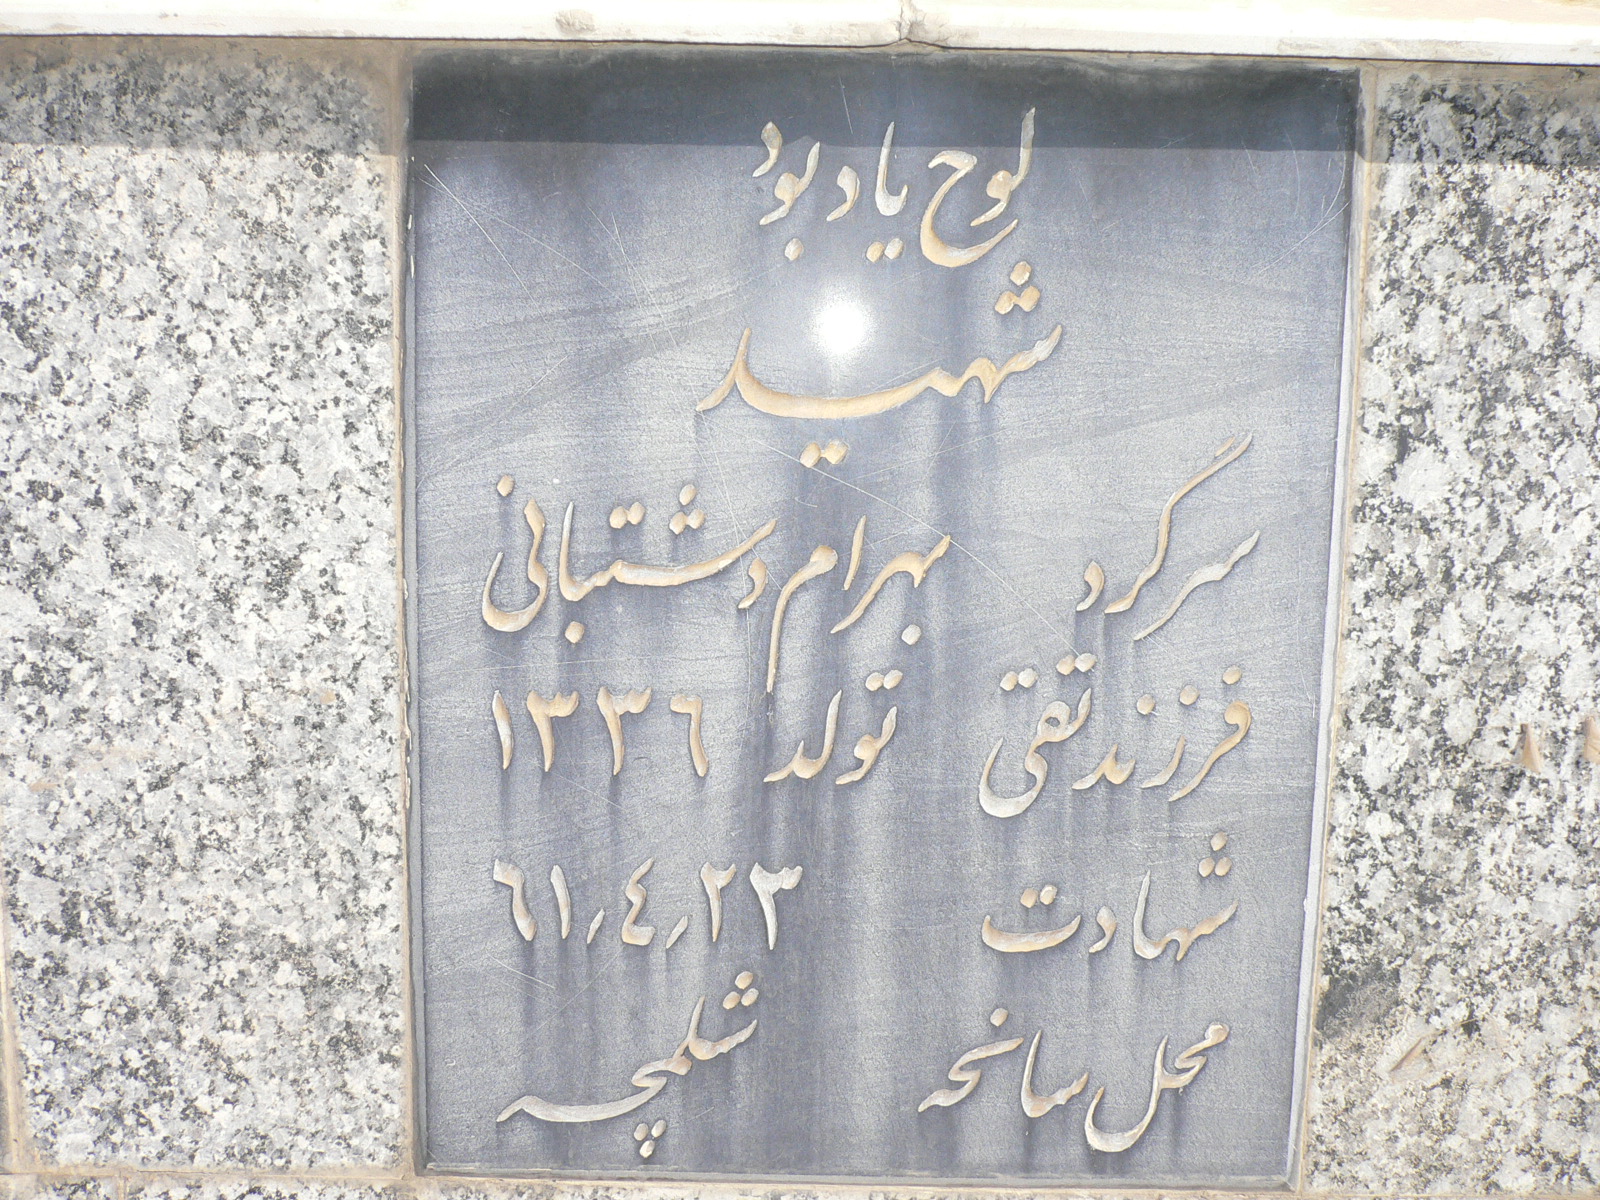 لوح یاد بود
شهید
سرگرد بهرام دشتبانی
فرزند تقی تولد ۱۳۳۶
شهادت ۲۳٫۴٫۶۱
محل سانحه شلمچه